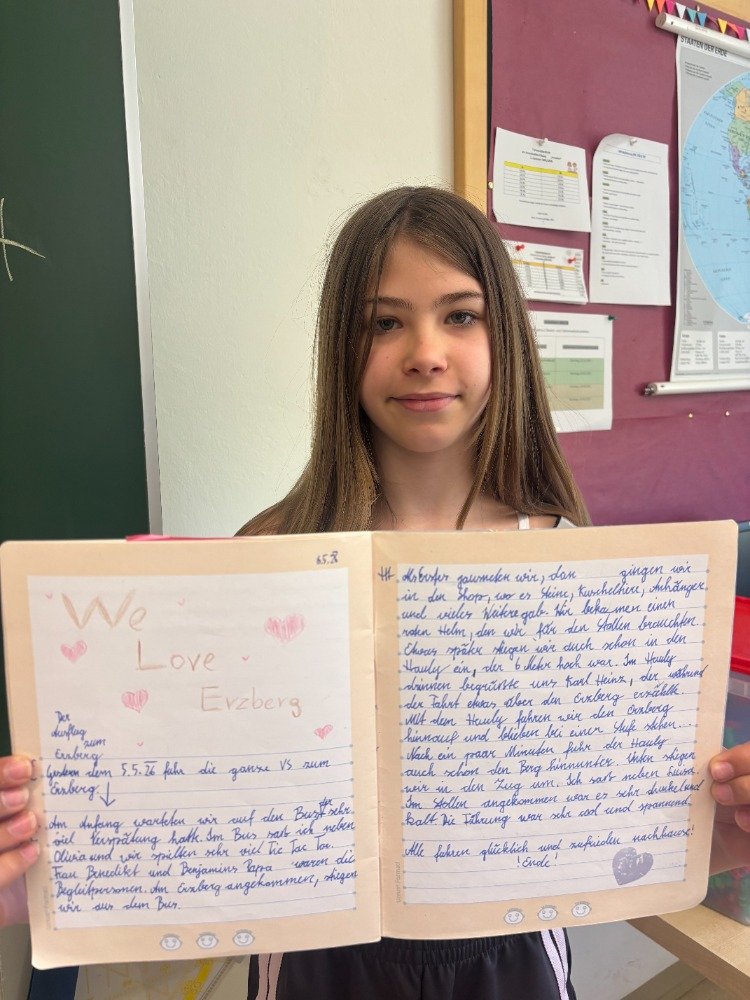 STAATEN DER ERDE
6.5.
We
Love
Erzberg
Der
Ausflug
zum
Erzberg
Gestern dem 5.5.26 fuhr die ganze VS zum
Erzberg.
Am Anfang warteten wir auf den Bus, der sehr
viel Verspätung hatte. Im Bus saß ich neben
Olivia und wir spilten sehr viel Tic Tac Toe.
Frau Benedikt und Benjamins Papa waren die
Begleitpersonen. Am Erzberg angekommen, stiegen
wir aus dem Bus.
Als Erstes jausneten wir, dan gingen wir
in den Shop, wo es Steine, Kuscheltiere, Anhänger
und vieles Weitere gab. Wir bekammen einen
roten Helm, den wir für den Stollen brauchten.
Etwas später stiegen wir auch schon in den
Hauly ein, der 6 Meter hoch war. Im Hauly
drinnen begrüßte uns Karl Heinz, der während
der Fahrt etwas über den Erzberg erzählte.
Mit dem Hauly fuhren wir den Erzberg
hinnauf und blieben bei einer Stufe stehen.
Nach ein paar Minuten fuhr der Hauly
auch schon den Berg hinnunter. Unten stiegen
wir in den Zug um. Ich saß neben Luisa.
Im Stollen angekommen war es sehr dunkel und
kalt. Die Führung war sehr cool und spannend.
Alle fuhren glücklich und zufrieden nachhause!
!Ende!